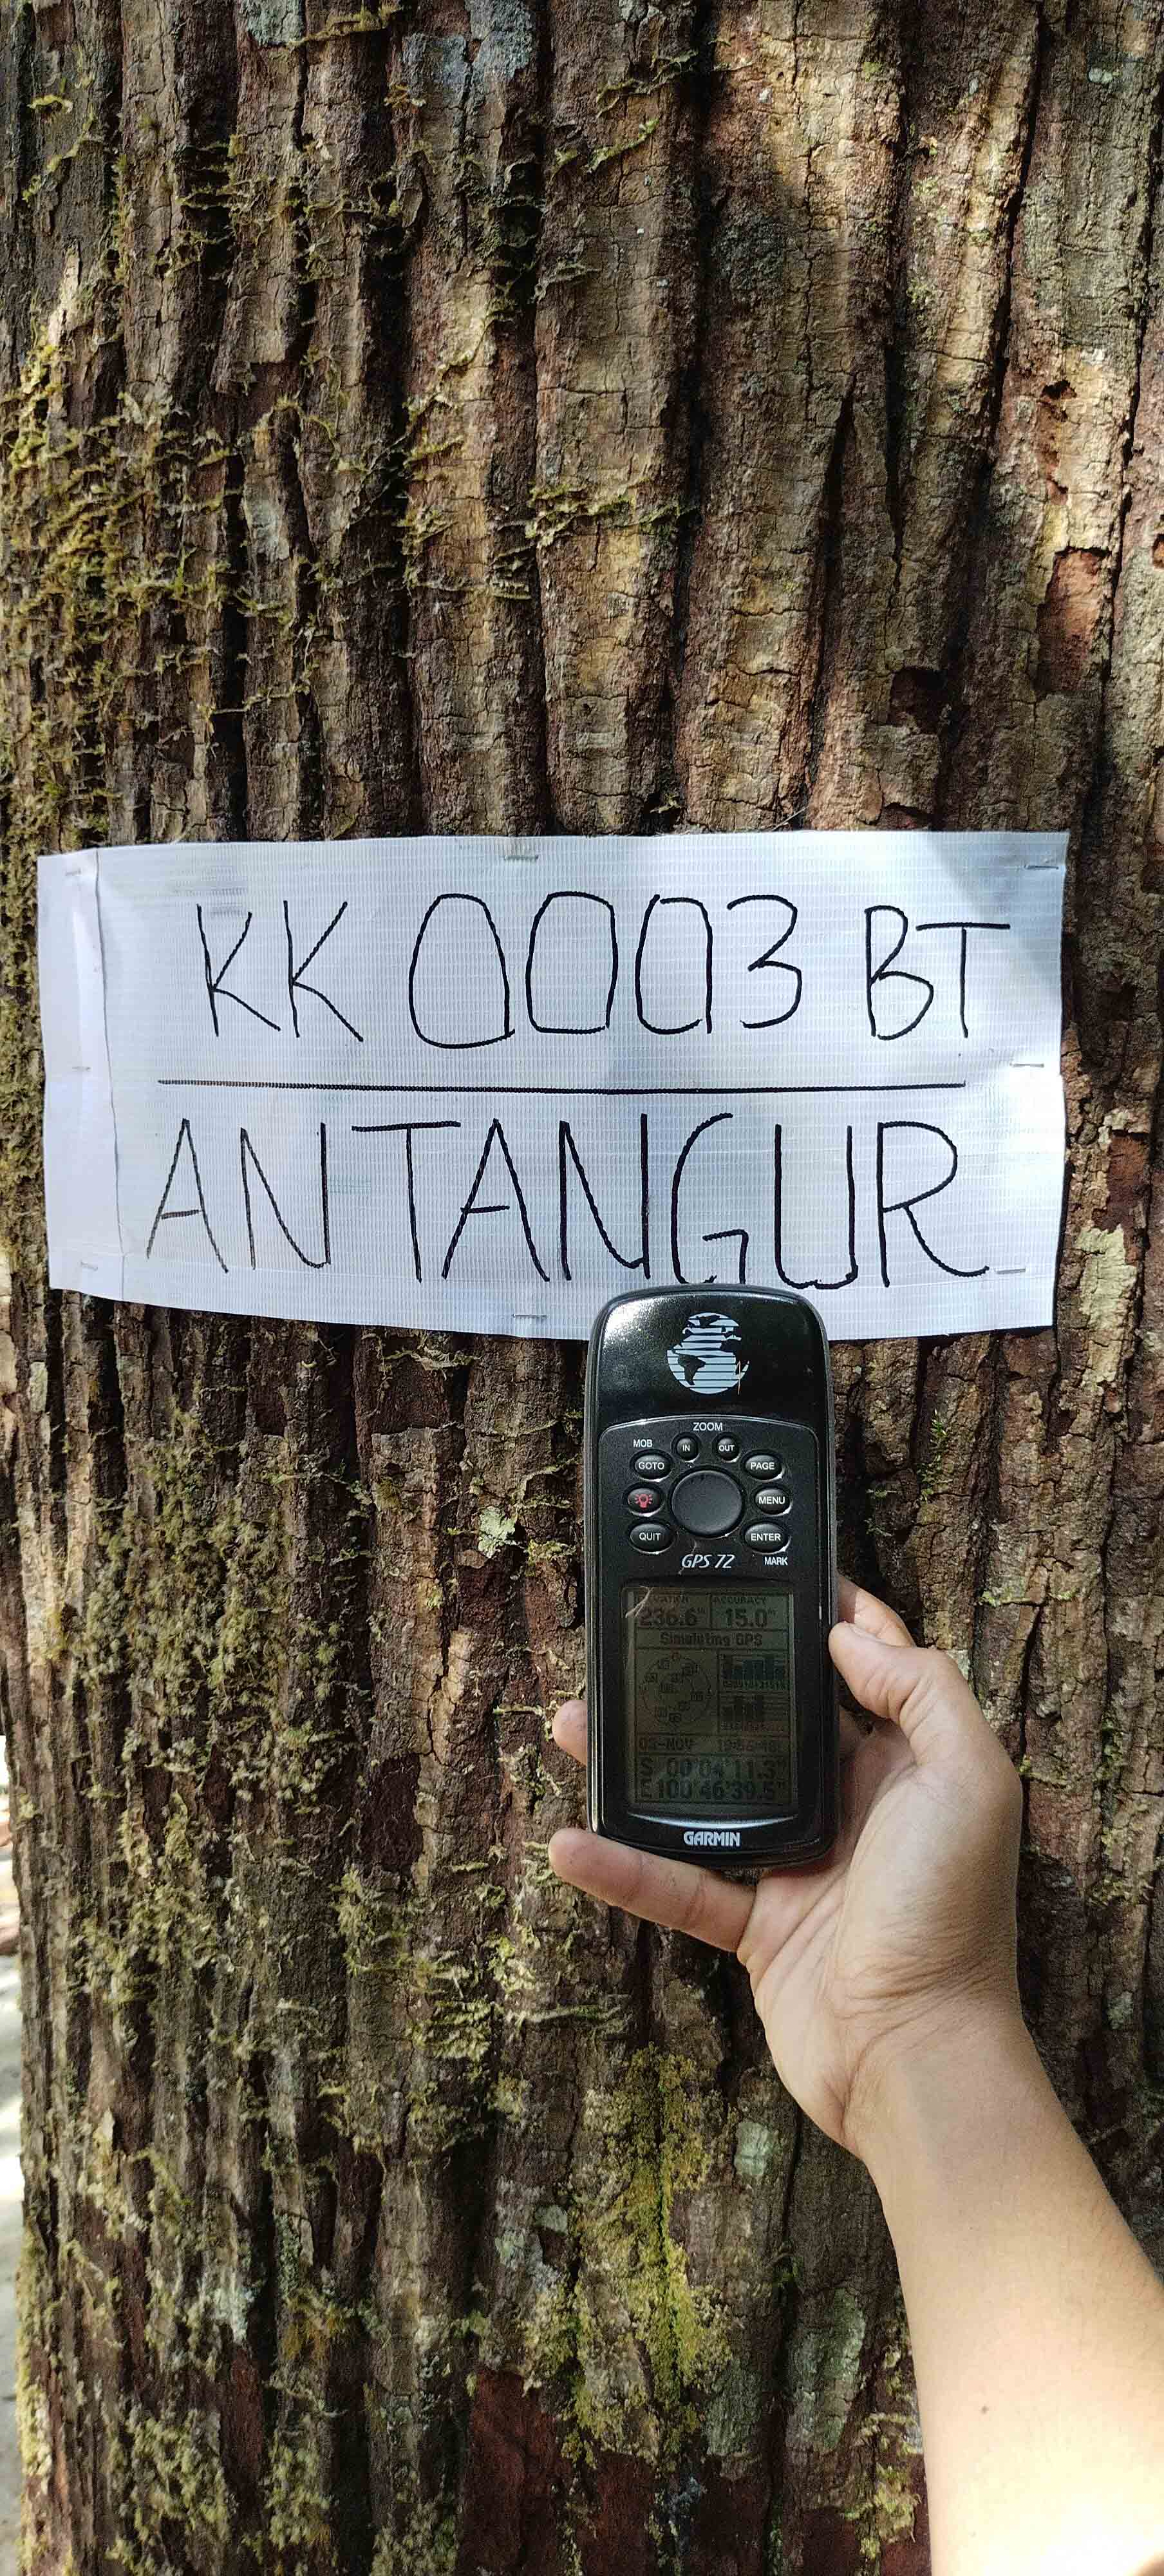 KK 0003 BT
ANTANGUR
ZOOM
MOB IN OUT
GOTO PAGE
MENU
QUIT ENTER
GPS 72 MARK
ACCURACY
236.6 15.0
Simulating GPS
02-NOV
S 00°04'11.3"
E100°46'39.5"
GARMIN